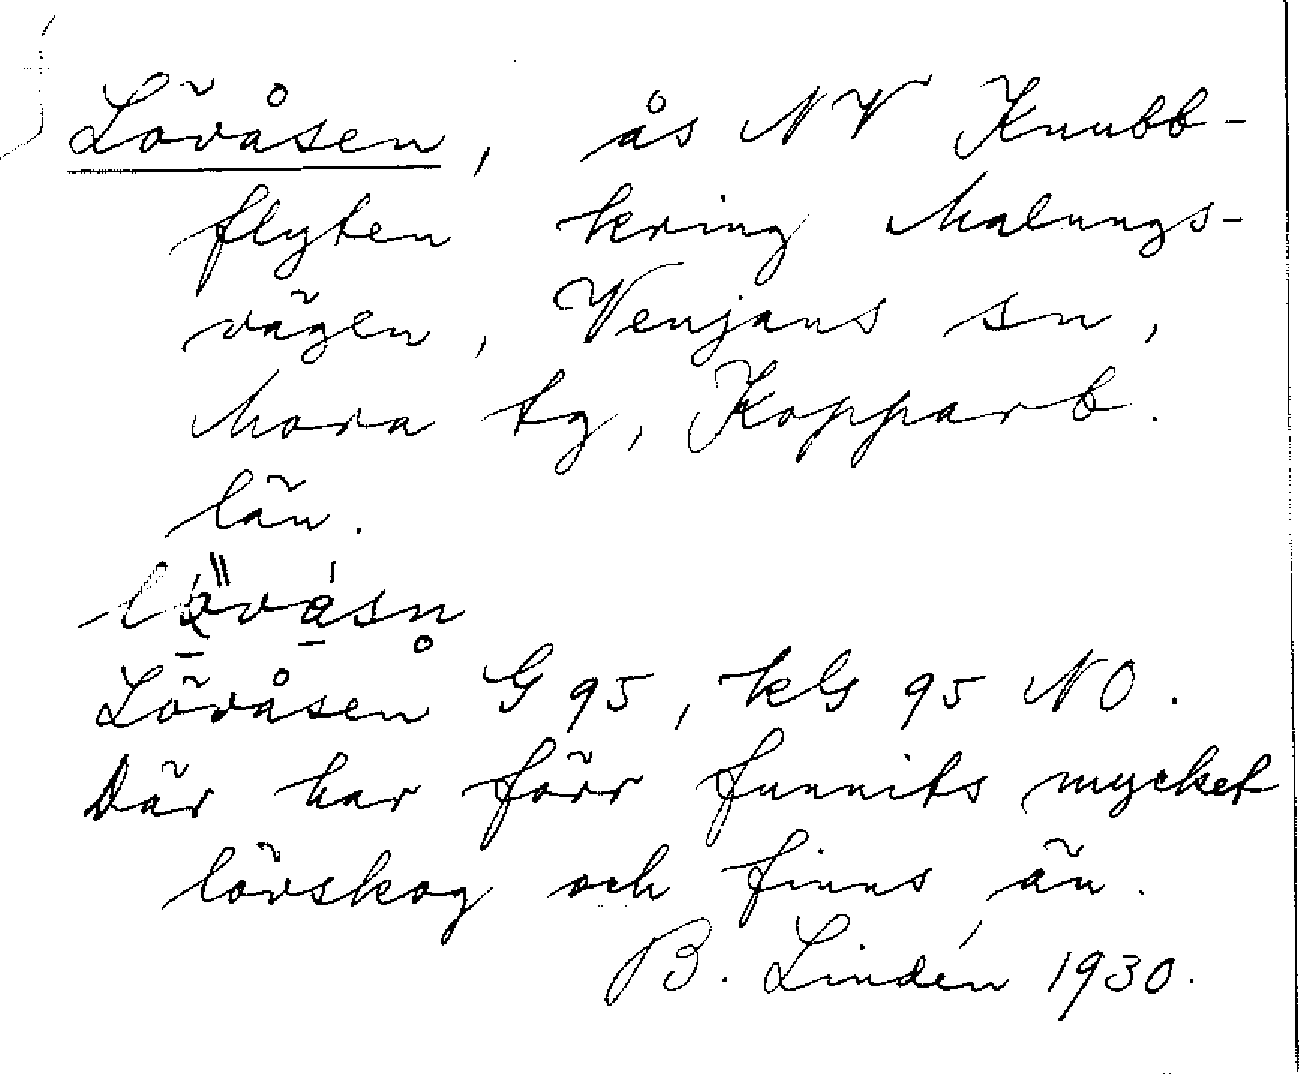 Lövåsen, ås NV Knubb-
flyten kring Malungs-
vägen, Venjans sn,
Mora tg, Kopparb.
län.
Lövåsen G 95, kG 95 NO.
Där har förr funnits mycket
lövskog och finns än.
B. Lindén 1930.